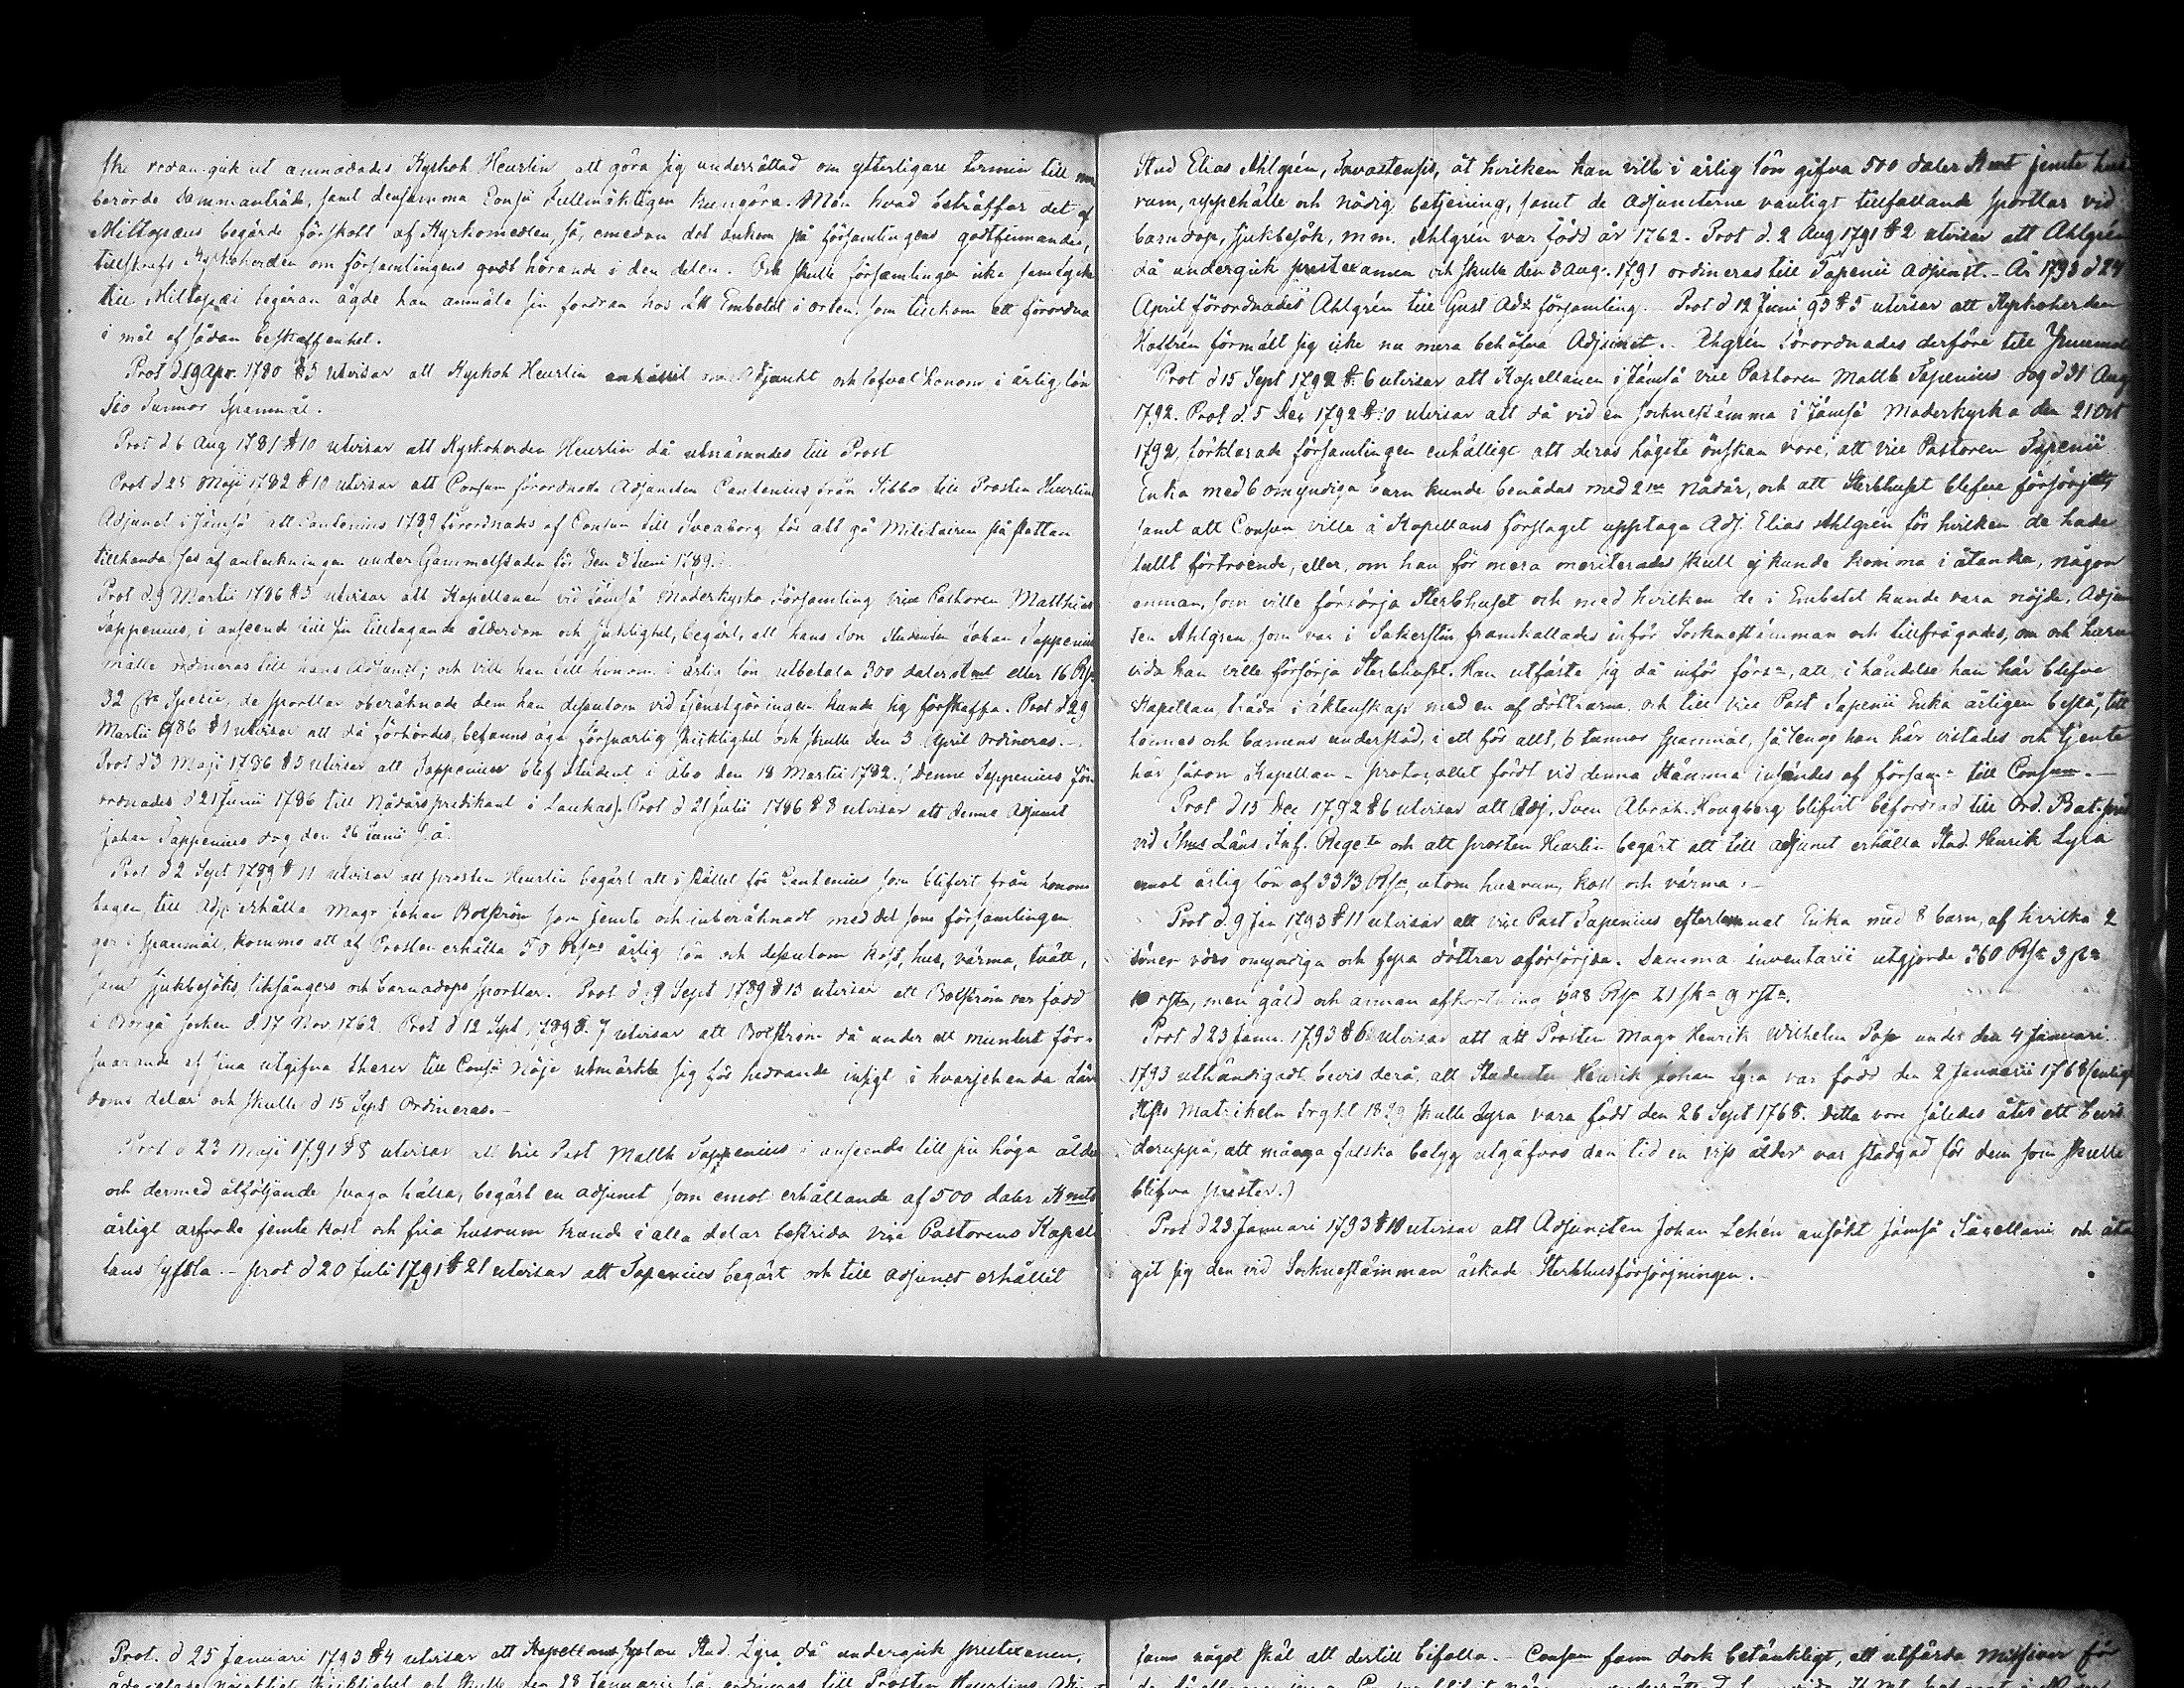 ske redan gik ut anmodades Kyrkoh Heurlin att göra sig underrättad om ytterligare termin till
berörde Sammanträde, samt densamma Consii Fullmäktigen kungöra. Men hvad beträffar det af
Miltopæus begärde förskott af Kyrkomedlen, så, emedan det ankom på församlingens godtfinnandes,
tillskrefs Kyrkoherden om församlingens godt hörande i den delen. Och skulle församlingen icke samtycka
till Miltopæi begäran ägde han anmäla sin fordran hos Embetet i orten, som tillkom att förordna
i mål af sådan beskaffenhet.
Prot d 19 Apr. 1780 § 5 utvisar att Kyrkoh Heurlin anhållit om Adjunkt och lofvat honom i årlig lön
Tio Tunnor Spannmål.
Prot d 6 Aug 1781 § 10 utvisar att Kyrkoherden Heurlin då utnämndes till Prost
Prot d 23 Maji 1782 § 10 utvisar att Consm förordnade Adjuncten Cantenius från Sibbo till Prosten Heurlins
Adjunct i Jämsä att Cantenius 1789 förordnades af Consm till Sveaborg för att gå Militairen på flottan
tillhanda ses af anteckningen under Gammelstaden för den 3 Juni 1789.
Prot d. 9 Martii 1786 § 5 utvisar att Kapellanen vid Jämsä Moderkyrko Församling vice Pastoren Matthias
Tappenius, i anseende till sin tilltagande ålderdom och sjuklighet, begärt, att hans son Studenten Johan Tappenius
måtte ordineras till hans Adjunct; och ville han till honom i årlig lön utbetala 300 daler kmt eller 16 Rsp
32 Specie, de sportlar oberäknade dem han desutom vid tjenstgöringen kunde sig förskaffa. Prot d 29
Martii 1786 § 1 utvisar att då förhördes, befanns äga försvarlig skicklighet och skulle den 3 April ordineras.
Prot d 3 Maji 1786 § 5 utvisar att Tappenius blef Student i Åbo den 18 Martii 1782. (Denne Tappenius för-
ordnades d 21 Junii 1786 till Nådårspredikant i Laukas). Prot d 21 Julii 1786 § 8 utvisar att denne Adjunct
Johan Tappenius dog den 26 Junii s. å.
Prot d 2 Sept 1789 § 11 utvisar att prosten Heurlin begärt att i stället för Cantenius som blifvit från honom
tagen, till Adj: erhålla Magr Johan Bolström som jemte och inberäknadt med det som församlingen
ger i spannmål, komme att af Prosten erhålla 50 årlig lön och desutom kost, hus, värma, tvätt,
samt Sjukbesöks, liksångers och barnadops Sportlar. Prot d. 9 Sept 1789 § 13 utvisar att Bolström var född
i Borgå socken d. 17 Nov 1762. Prot d 12 Sept. 1789 § 7 utvisar att Bolström då under ett muntert för-
svarande af sina utgifna theser till Consii Nöje utmärkte sig för hedrande insigt i hvarjehanda Lär-
doms delar och skulle d 15 Sept Ordineras.
Prot d 23 Maji 1791 § 8 utvisar att vice Past Matth Tappenius i anseende till sin höga ålder
och dermed åtföljande svaga hälsa, begärt en adjunct som emot erhållande af 500 daler Kmts
årligt arfvode jemte kost och fria husrum kunde i alla delar bestrida vice Pastorens Kapel-
lans syssla. - prot d 20 Juli 1791 § 21 utvisar att Tapenius begärt och till adjunct erhållit
Stud Elias Ahlgrén, Tavastensis, åt hvilken han ville i årlig lön gifva 500 daler Kmt jemte hus-
rum, uppehälle och nödig betjening, samt de adjuncterne vanligt tillfallande Sportlar vid
barndop, sjukbesök, m.m. Ahlgrén var född år 1762. Prot d. 2 Aug 1791 § 2 utvisar att Ahlgrén
då undergick prestexamen och skulle den 3 Aug. 1791 ordineras till Tapenii Adjunct. - År 1793 d 24
April förordnades Ahlgrén till Gust Ads församling. Prot d 12 Juni 93 § 5 utvisar att Kyrkoherden
förmält sig icke nu mera behöfva Adjunct. Ahlgrén förordnades derföre till
Prot d 15 Sept 1792 § 6 utvisar att Kapellanen i Jämsä vice Pastoren Matth Tapenius dog d 31 Aug
1792. Prot d. 5 Dec 1792 § 10 utvisar att då vid en sockenstämma i Jämsä Moderkyrka den 21 Oct
1792, förklarade församlingen enhällige att deras högsta önskan vore, att vice Pastoren Tapenii
Enka med 6 omyndiga barn kunde benådas med 2ne Nådår, och att Sterbhuset blefve försörjdt,
samt att Consm ville å Kapellans förslaget upptaga Adj. Elias Ahlgrén för hvilken de hade
fullt förtroende, eller, om han för mera meriterades skull ej kunde komma i åtanka, någon
annan, som ville försörja Sterbhuset och med hvilken de i Embetet kunde vara nöjde. Adjunc-
ten Ahlgren som var i Sakerstin framkallades inför Sockenstämman och tillfrågades, om och huru-
vida han ville försörja Sterbhuset. Han utfäste sig då inför förs:n, att, i händelse han här blefve
Kapellan, träda i äktenskap med en af döttrarne, och till vice Past Tapenii Enka årligen bestå, till
hennes och barnens understöd, i ett för allt, 6 tunnor spannmål, så länge han här vistades och tjente
här såsom Kapellan. - protocollet fördt vid denna Stämma insändes af församn till Consm. -
Prot d 15 Dec 1792 § 6 utvisar att Adj. Sven Abrah. Hougberg blifvit befordrad till Ord. Bat. pred
vid Läns Inf. Regete och att prosten Heurlin begärt att till adjunct erhålla Stud Henrik Lyra
emot årlig lön af 33 1/3 utom husrum, kost och värma. -
Prot d. 9 Jan 1793 § 11 utvisar att vice Past Tapenius efterlemnat Enka med 8 barn, af hvilka 2
söner voro omyndiga och fyra döttrar oförsörjda. Samma inventarii utgjorde 360 3
10 rst, men gäld och annan afkortning 21 sk 9 rst.
Prot d 23 Janu. 1793 § 6 utvisar att att Prosten Magr Henrik Wilhelm under den 4 Januari
1793 uthändigadt bevis derå, att Studenten Henrik Johan Lyra var född den 2 Januarii 1768 (enligt
Stifts Matrikeln 1829 skulle Lyra vara född den 26 Sept 1768. Detta vore således åter ett bevis
deruppå, att många falska betyg utgåfvos den tid en viss ålder var stadgad för dem som skulle
blifva prester.)
Prot d 23 Januari 1793 § 10 utvisar att Adjuncten Johan Lehén ansökt Jämsä Sacellani och åta-
git sig den vid Sockenstämman äskade Sterbhusförsörjningen.
Prot. d 25 Januari 1793 § 4 utvisar att Stud. Lyra då undergick prestexamen,
fann något skäl att dertill bifalla. - Consm fann dock betänkligt, att utfärda för